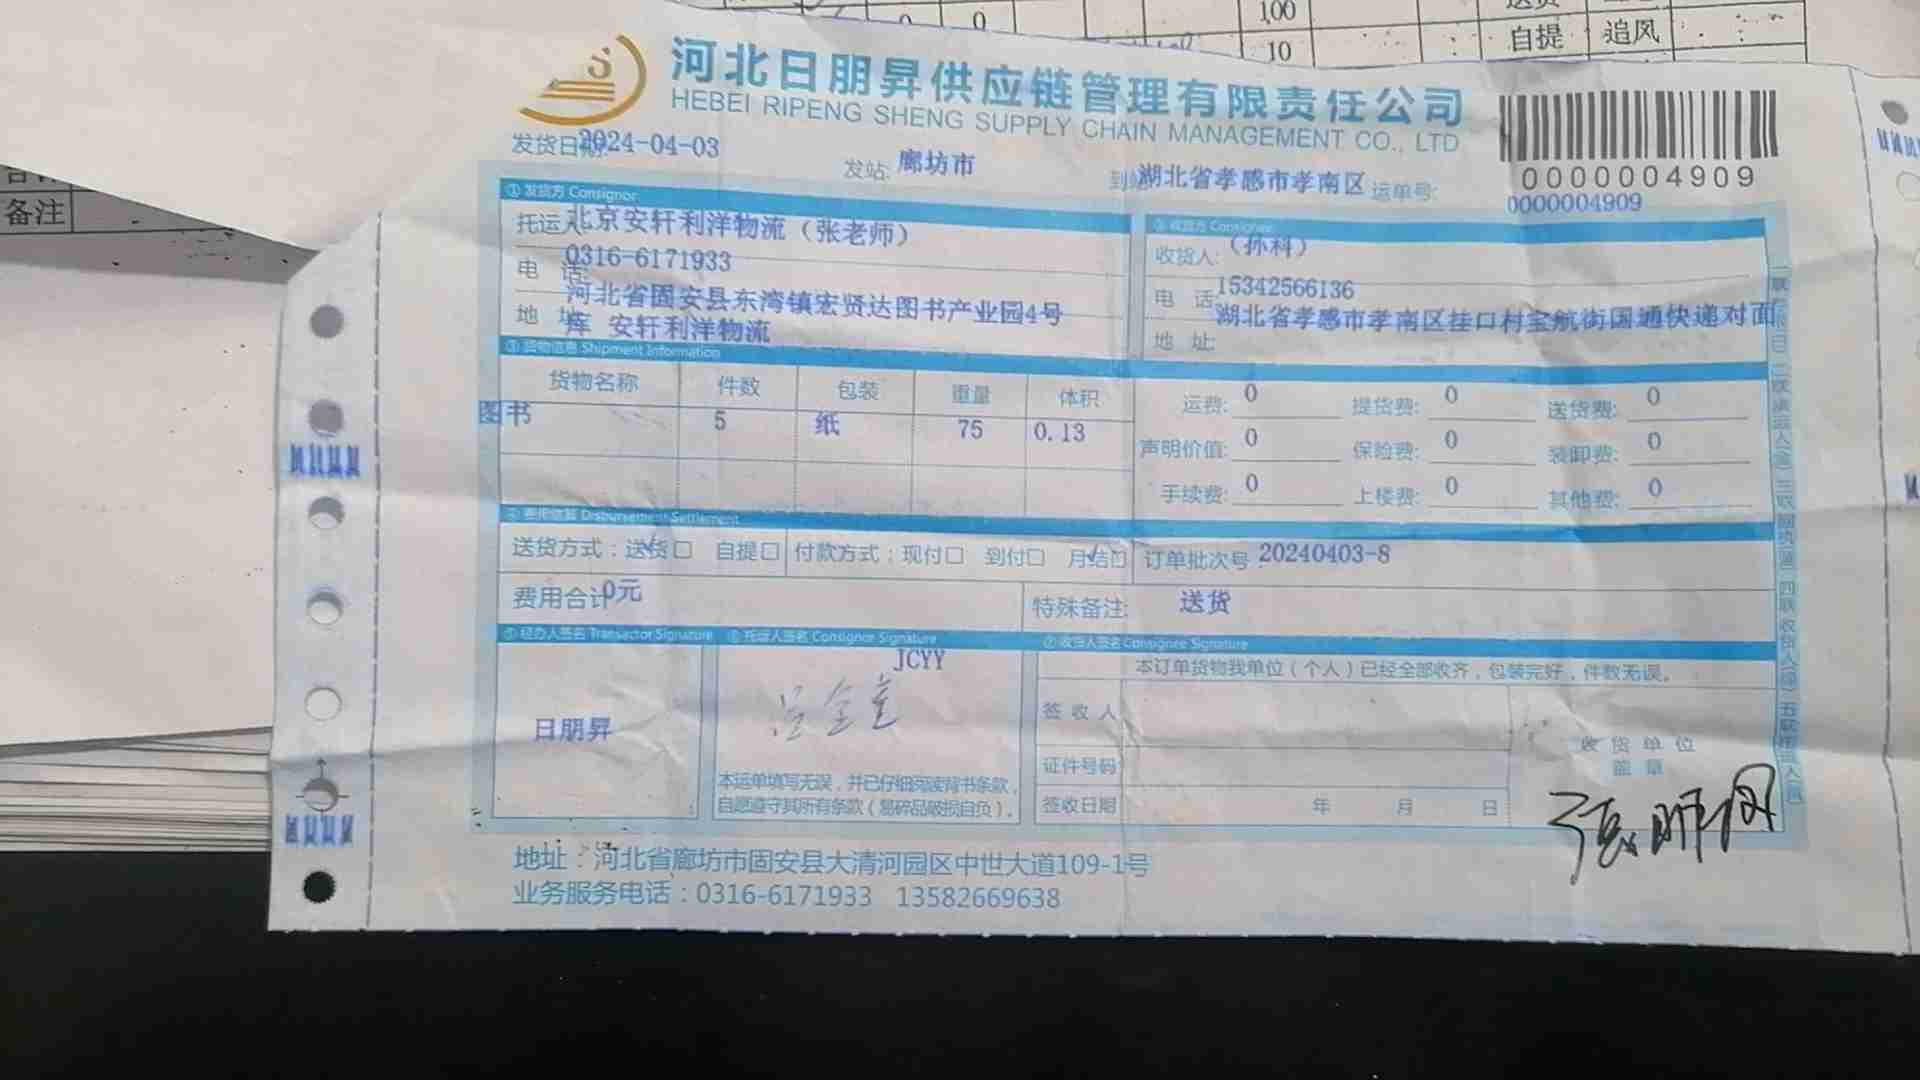 100
送货
10
自提
追风
备注
河北日朋昇供应链管理有限责任公司
HEBEI RIPENG SHENG SUPPLY CHAIN MANAGEMENT CO., LTD
发货日期: 2024-04-03
发站: 廊坊市
到站: 湖北省孝感市孝南区
运单号:
0000004909
0000004909
① 发货方 Consignor
托运人: 北京安轩利洋物流（张老师）
电 话: 0316-6171933
地 址: 河北省固安县东湾镇宏贤达图书产业园4号
库 安轩利洋物流
② 收货方 Consignee
收货人: （孙科）
电 话: 15342566136
地 址: 湖北省孝感市孝南区挂口村宝航街国通快递对面
③ 货物信息 Shipment Information
货物名称 件数 包装 重量 体积
图书 5 纸 75 0.13
运费: 0 提货费: 0 送货费: 0
声明价值: 0 保险费: 0 装卸费: 0
手续费: 0 上楼费: 0 其他费: 0
④ 费用结算 Disbursement Settlement
送货方式：送货√□ 自提□ 付款方式：现付□ 到付□ 月结√□ 订单批次号 20240403-8
费用合计 0元
特殊备注: 送货
⑤ 经办人签名 Transactor Signature
⑥ 托运人签名 Consignor Signature
⑦ 收货人签名 Consignee Signature
JCYY
日朋昇
本运单填写无误，并已仔细阅读背书条款，
自愿遵守其所有条款（易碎品破损自负）。
本订单货物我单位（个人）已经全部收齐，包装完好，件数无误。
签 收 人
证件号码
签收日期 年 月 日
收 货 单 位
盖 章
地址：河北省廊坊市固安县大清河园区中世大道109-1号
业务服务电话：0316-6171933 13582669638